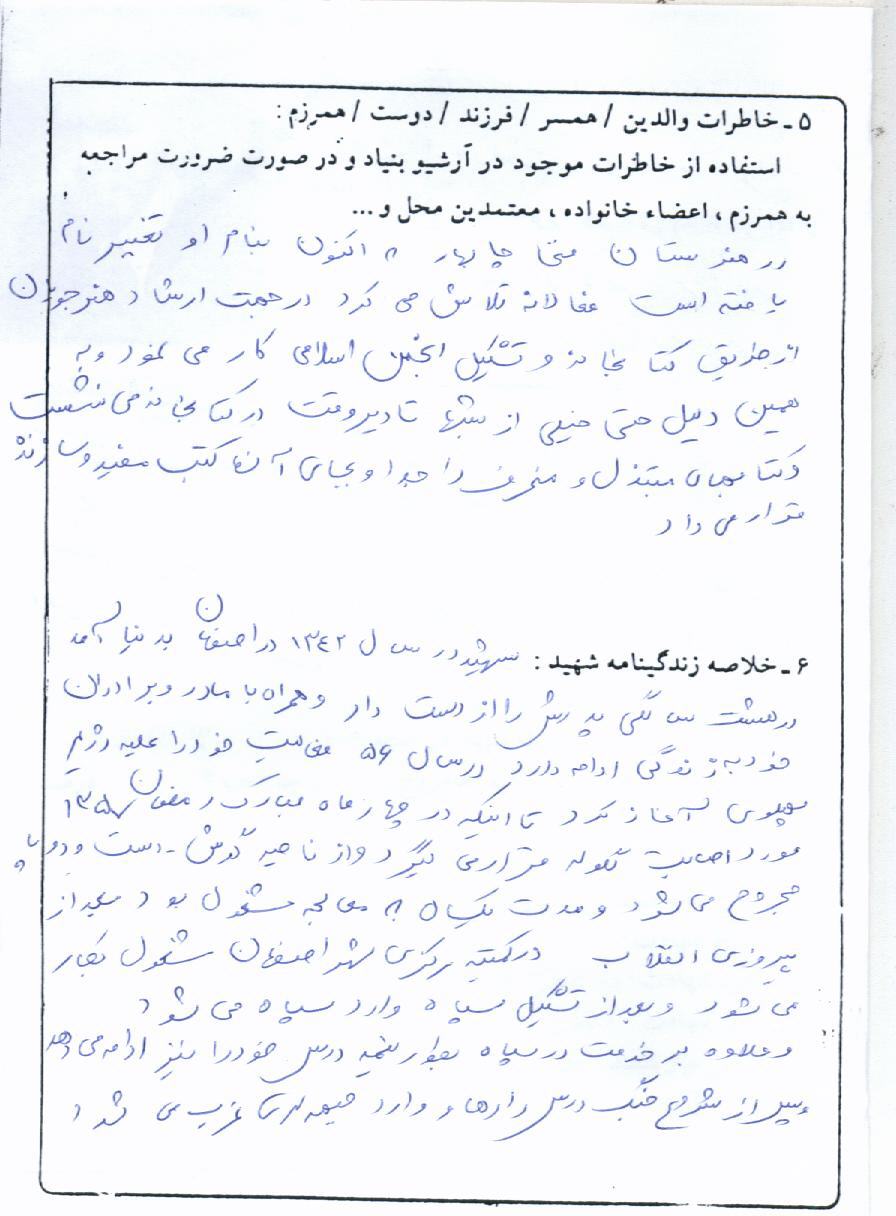 ۵ ـ خاطرات والدین / همسر / فرزند / دوست / همرزم :
استفاده از خاطرات موجود در آرشیو بنیاد و در صورت ضرورت مراجعه
به همرزم ، اعضاء خانواده ، معتمدین محل و ...
در هنرستان چابهار که اکنون بنام او تغییر نام
یافته است فعالانه تلاش می کرد در جهت ارشاد هنرجویان
از طریق کتابخانه و تشکیل انجمن اسلامی کار می نمود و به
همین دلیل حتی خیلی از شبها تا دیر وقت در کتابخانه می نشست
و کتابهای مبتذل و منحرف را جدا و بجای آنها کتب مفید و سازنده
قرار می داد
۶ ـ خلاصه زندگینامه شهید : شهید در سال ۱۳۴۲ در اصفهان به دنیا آمد
در هشت سالگی پدرش را از دست داد و همراه با مادر و برادران
خود به زندگی ادامه داد در سال ۵۶ فعالیت خود را علیه رژیم
پهلوی آغاز کرد تا اینکه در چهار ماه مبارک رمضان
مورد اصابت گلوله قرار می گیرد و از ناحیه راست و دو پا
مجروح می شود و مدت یکماه به معالجه مشغول بود بعد از
پیروزی انقلاب در کمیته مرکزی شهر اصفهان مشغول بکار
می شود و بعد از تشکیل سپاه وارد سپاه می شود
و علاوه بر خدمت در سپاه بطور نیمه درس خود را نیز ادامه می دهد
و پس از شروع جنگ درس را رها و وارد جبهه های غرب می شود